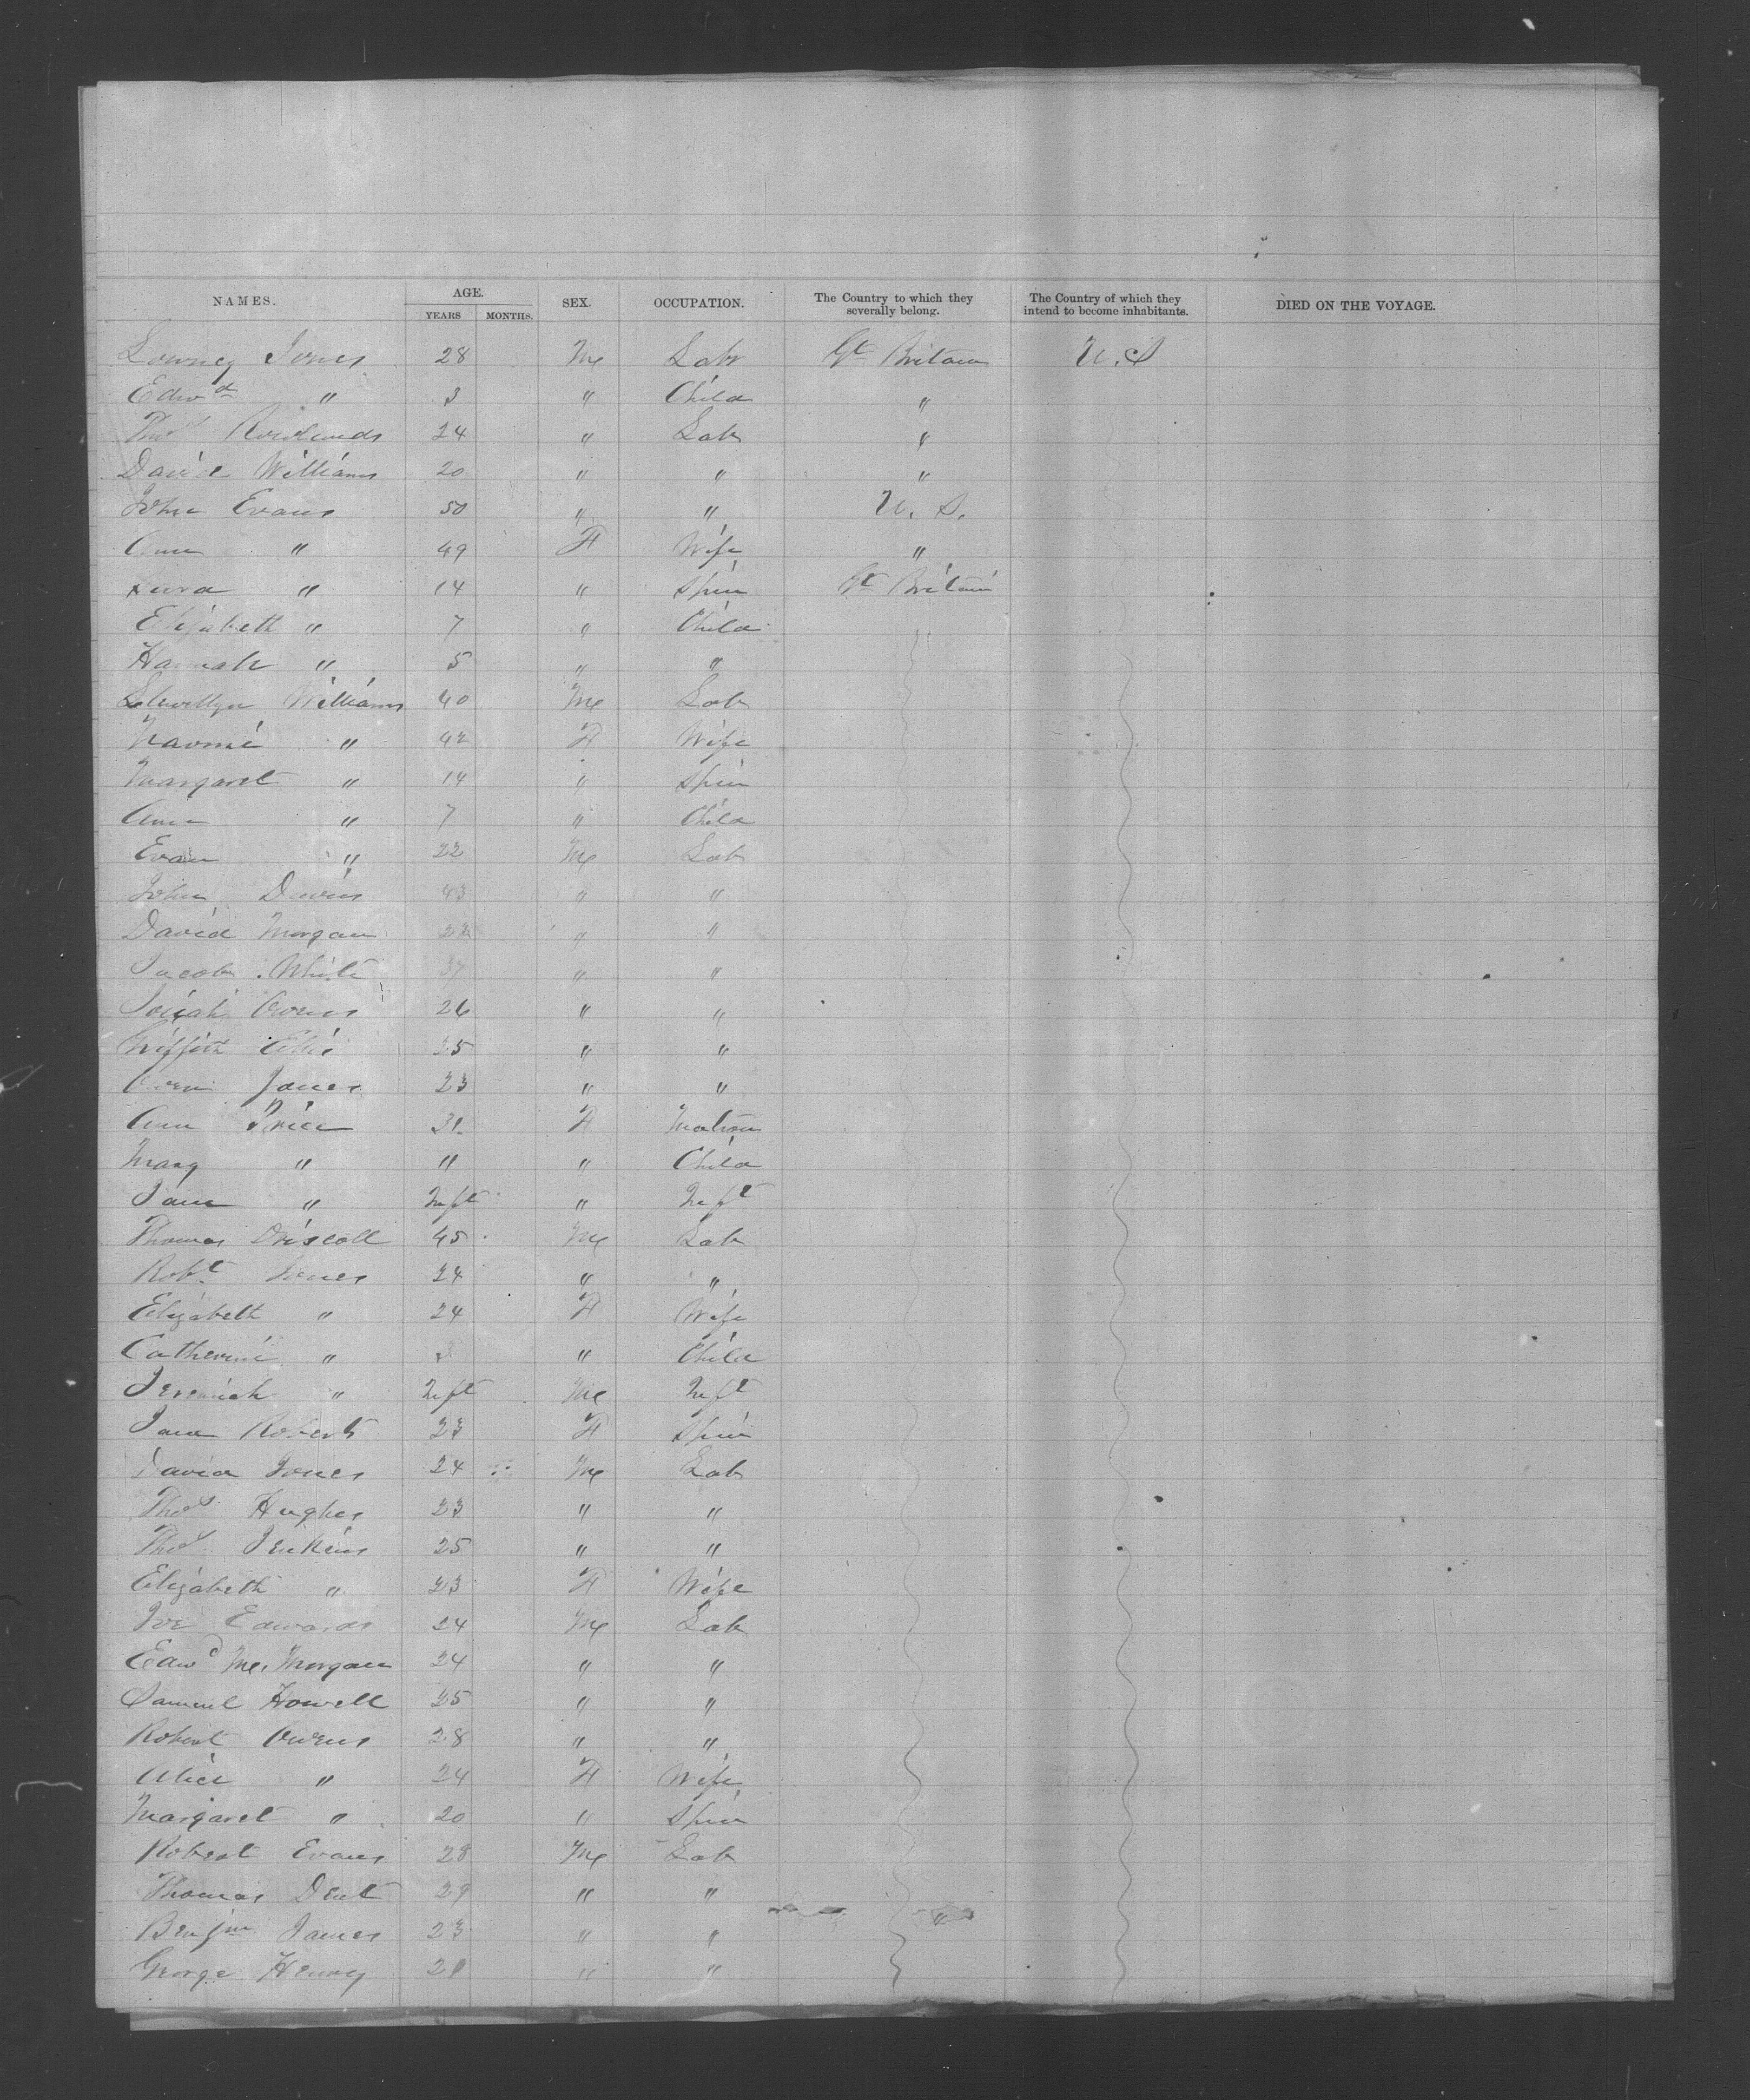 NAMES. AGE. SEX. OCCUPATION. The Country to which they severally belong. The Country of which they intend to become inhabitants. DIED ON THE VOYAGE.
YEARS MONTHS.
Jones 28 M Lab Gt Britain U.S
Edwd " 3 " Child "
Thos Rowlands 24 " Lab "
David Williams 20 " " "
John Evans 50 " " U. S.
Ann " 49 F Wife "
" 14 " Spin Gt Britain
Elizabeth " 7 " Child
Hannah " 5 " "
Llewellyn Williams 40 M Lab
Naomi " 42 F Wife
Margaret " 14 " Spin
Ann " 7 " Child
Evan " 22 M Lab
John Davis 43 " "
David Morgan 22 " "
Jacob White 37 " "
Josiah Owens 26 " "
Griffith Ellis 25 " "
Owen Jones 23 " "
Ann Price 31 F Matron
Mary " 11 " Child
Jane " Inft " Inft
Thomas Driscoll 45 M Lab
Robt Jones 24 " "
Elizabeth " 24 F Wife
Catherine " Child
Jeremiah " Inft M Inft
Jane Roberts 23 F Spin
David Jones 24 M Lab
Thos Hughes 23 " "
Thos Jenkins 25 " "
Elizabeth " 23 F Wife
Joe Edwards 24 M Lab
Edwd Mc. Morgan 24 " "
Samuel Howell 25 " "
Robert Owens 28 " "
Alice " 24 F Wife
Margaret " 20 " Spin
Robert Evans 28 M Lab
Thomas Dent 29 " "
Benjm James 23 " "
George Henry 21 " "